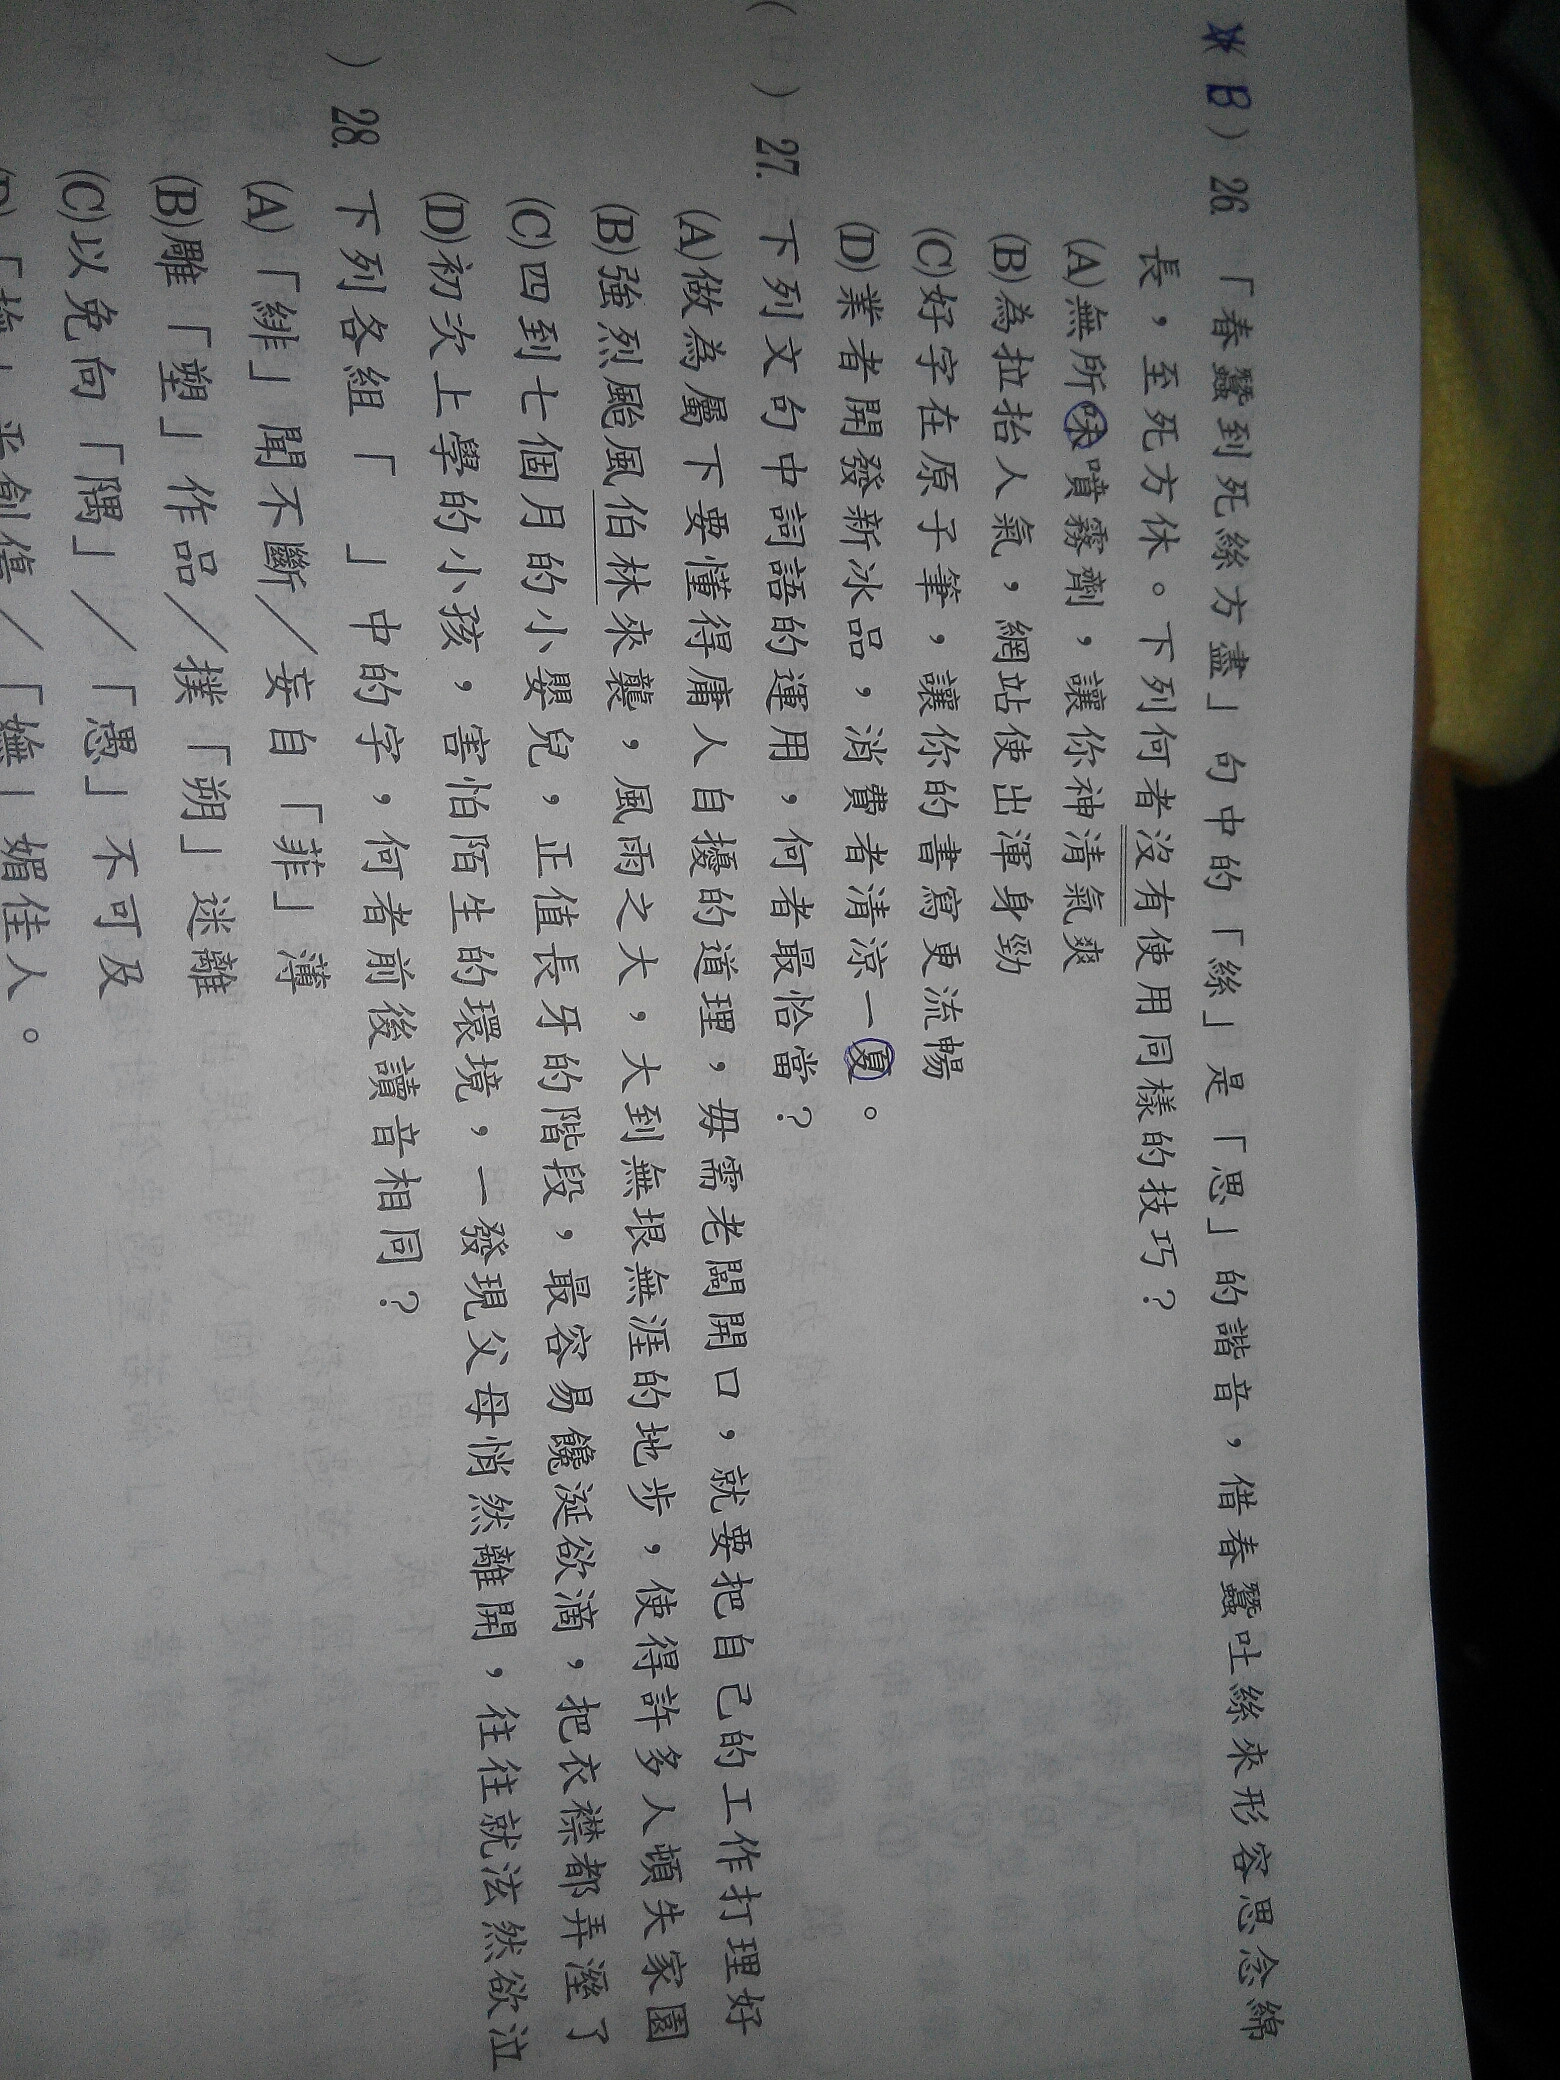 * B ) 26. 「春蠶到死絲方盡」句中的「絲」是「思」的諧音，借春蠶吐絲來形容思念綿
長，至死方休。下列何者沒有使用同樣的技巧？
(A)無所味噴霧劑，讓你神清氣爽
(B)為拉抬人氣，網站使出渾身勁
(C)好字在原子筆，讓你的書寫更流暢
(D)業者開發新冰品，消費者清涼一夏。
( ) 27. 下列文句中詞語的運用，何者最恰當？
(A)做為屬下要懂得庸人自擾的道理，毋需老闆開口，就要把自己的工作打理好
(B)強烈颱風伯林來襲，風雨之大，大到無垠無涯的地步，使得許多人頓失家園
(C)四到七個月的小嬰兒，正值長牙的階段，最容易饞涎欲滴，把衣襟都弄溼了
(D)初次上學的小孩，害怕陌生的環境，一發現父母悄然離開，往往就泫然欲泣
) 28. 下列各組「 」中的字，何者前後讀音相同？
(A)「緋」聞不斷／妄自「菲」薄
(B)雕「塑」作品／撲「朔」迷離
(C)以免向「隅」／「愚」不可及
(D)「 」 創傷／「嫵」媚佳人。